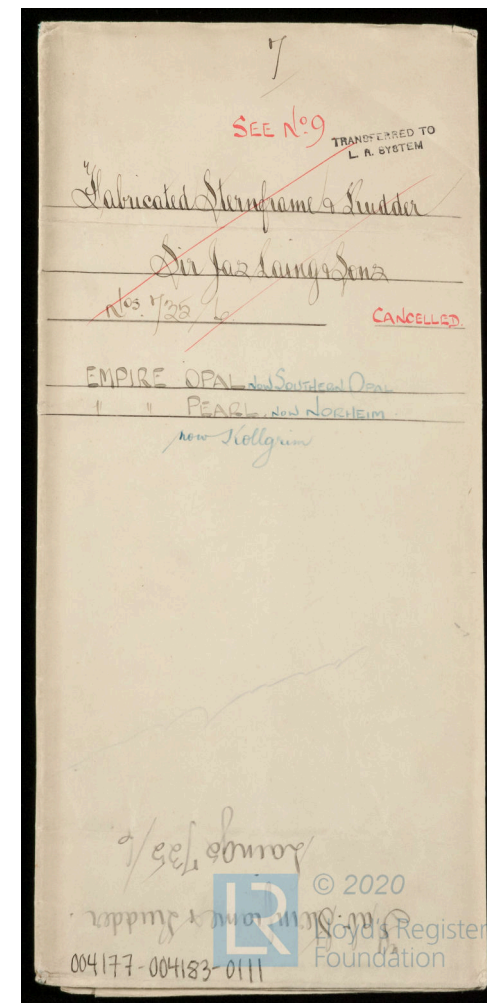 7
SEE No 9
TRANSFERRED TO
L. R. SYSTEM
Fabricated Sternframe & Rudder
Sir Jas Laing & Sons
Nos. 735/6
CANCELLED.
EMPIRE OPAL now SOUTHERN OPAL
" " PEARL. NOW NORHEIM
now Kollgrim
Laings 735/6
Fabr. Sternframe & Rudder.
© 2020
Lloyd's Register
Foundation
004177-004183-0111